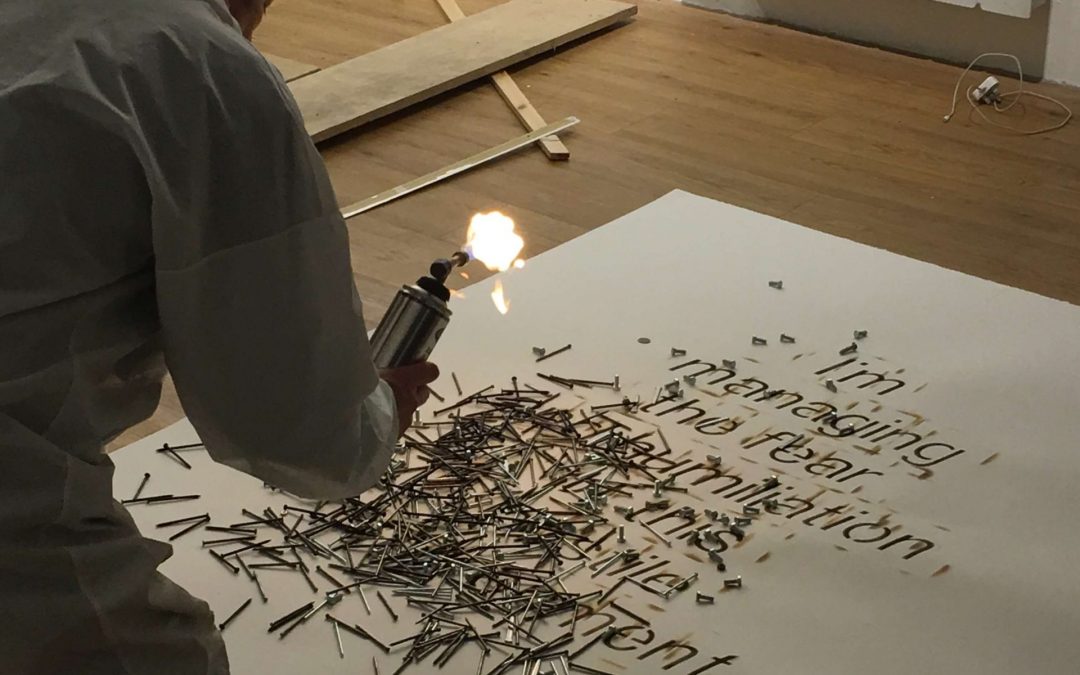 I'm
managing
the fear
humiliation
this
tile
ment